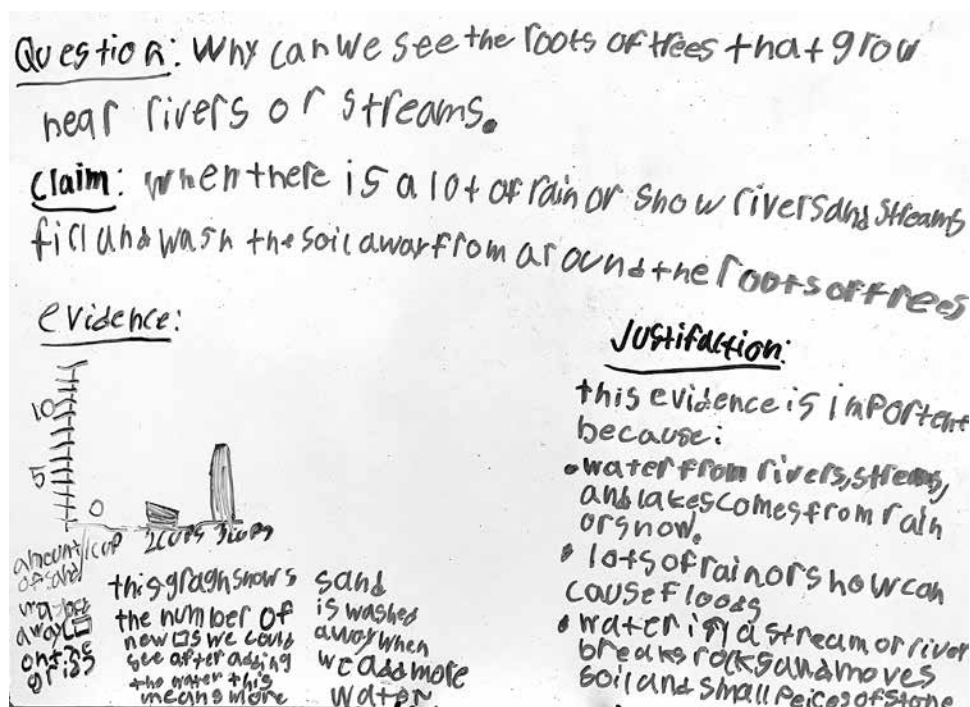 Question: Why can we see the roots of trees that grow
near rivers or streams.
Claim: when there is a lot of rain or snow rivers and streams
fill and wash the soil away from around the roots of trees
evidence:
10
5
0
1cup
2cups
3cups
amount
of sand
washed
away □
on the
grid
this graph shows
the number of
new □s we could
see after adding
the water this
means more
sand
is washed
away when
we add more
water
Justifaction:
this evidence is importent
because:
• water from rivers, streams,
and lakes comes from rain
or snow.
• lots of rain or snow can
cause floods
• water in a stream or river
breaks rocks and moves
soil and small peices of stone